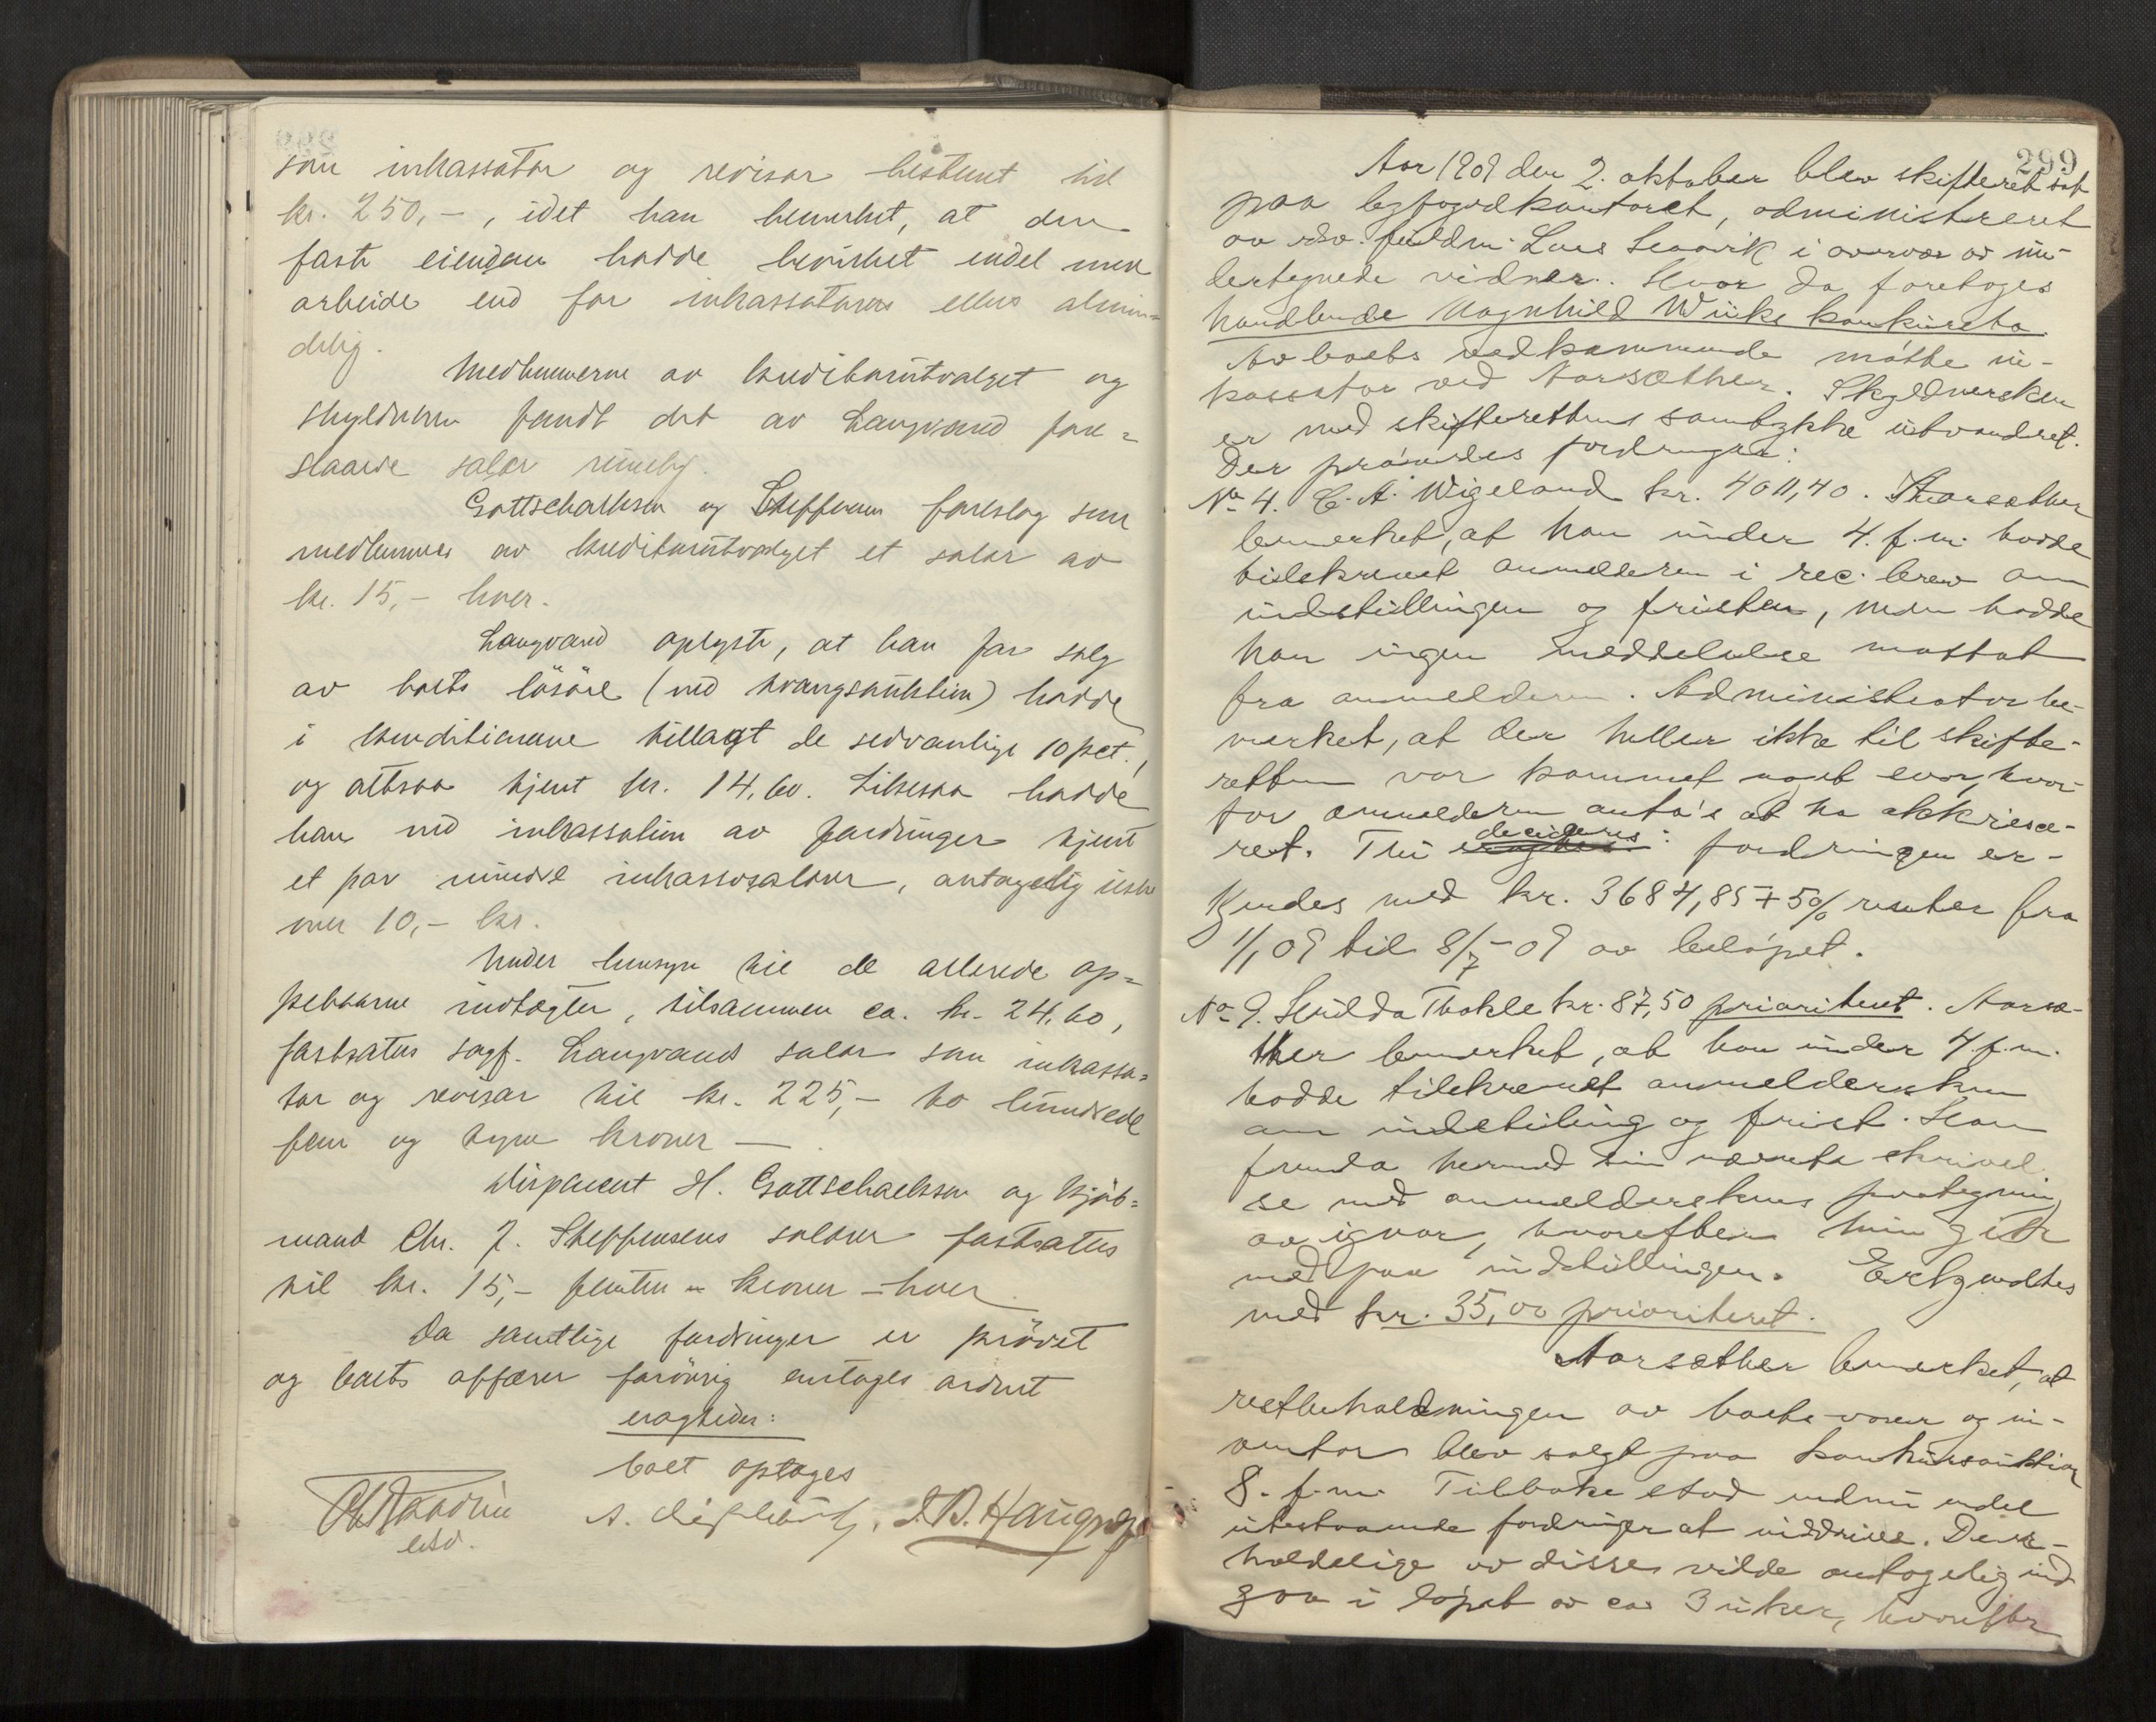 som inkassator og revisor bestemt til
kr. 250,-, idet han bemerket, at den
faste eiendom hadde bevirket endel mer
arbeide end for inkassatoren ellers almin-
delig.
Medlemmerne av kreditorutvalget og
skyldneren fandt det av Langvand fore-
slaaede salær rimelig.
Gottschalksen og Steffensen foreslog som
medlemmer av kreditorutvalget et salær av
kr. 15,- hver.
Langvand oplyste, at han for salg
av boets lösöre (ved tvangsauktion) hadde
i konditionerne tillagt de sedvanlige 10 pct.,
og altsaa tjent kr. 14,60. Likesaa hadde
han ved inkassation av fordringer tjent
et par mindre inkassosalærer, antagelig ikke
over 10,- kr.
Under hensyn til de allerede op-
pebaarne indtægter, tilsammen ca. kr. 24,60,
fastsattes sagf. Langvands salær som inkassa-
tor og revisor til kr. 225,- to hundrede
fem og tyve kroner —
Disponent H. Gottschalksen og kjöb-
mand Chr. J. Steffensens salærer fastsattes
til kr. 15,- femten - kroner - hver.
Da samtlige fordringer er prövet
og boets affærer forövrig antages ordnet
eragtedes:
boet optages
299
Aar 1909 den 2. oktober blev skifteret sat
paa byfogedkontoret, administreret
av edsv. fuldm. Lars Leaavik i overvær av un-
dertegnede vidner. Hvor da foretoges
handlende Ragnhild Wiiks konkursbo.
Av boets vedkommende møtte in-
kassator ved Aarsæther. Skyldnersken
er med skifterettens samtykke utvandret.
Der prøvedes fordringer:
No 4. C. A. Wigeland kr. 4011,40. Aarsæther
bemerket, at han under 4. f.m. hadde
tilskrevet anmelderen i rec. brev om
indstillingen og fristen, men hadde
han ingen meddelelse mottat
fra anmelderen. Administrator be-
merket, at der heller ikke til skifte-
retten var kommet noget svar, hvor-
for anmelderen antas at ha akkviesce-
ret. Thi decideres: fordringen er-
kjendes med kr. 3684,85 + 5% renter fra
1/1 09 til 8/7-09 av beløpet.
No 9. Hulda Thokle kr. 87,50 prioritert. Aarsæ-
ther bemerket, at han under 4. f.m.
hadde tilskrevet anmeldersken
om indstilling og frist. Han
fremla hermed sin nævnte skrivel
se med anmelderskens paategning
av igaar, hvorefter hun gik
med paa indstillingen. Erkjendtes
med kr. 35,00 prioritert.
Aarsæther bemerket, at
restbeholdningen av boets varer og in-
ventar blev solgt paa konkursauktion
8. f.m. Tilbake stod endnu endel
utestaaende fordringer at inddrive. De er-
holdelige av disse vilde antagelig ind
gaa i løpet av ca. 3 uker, hvorefter